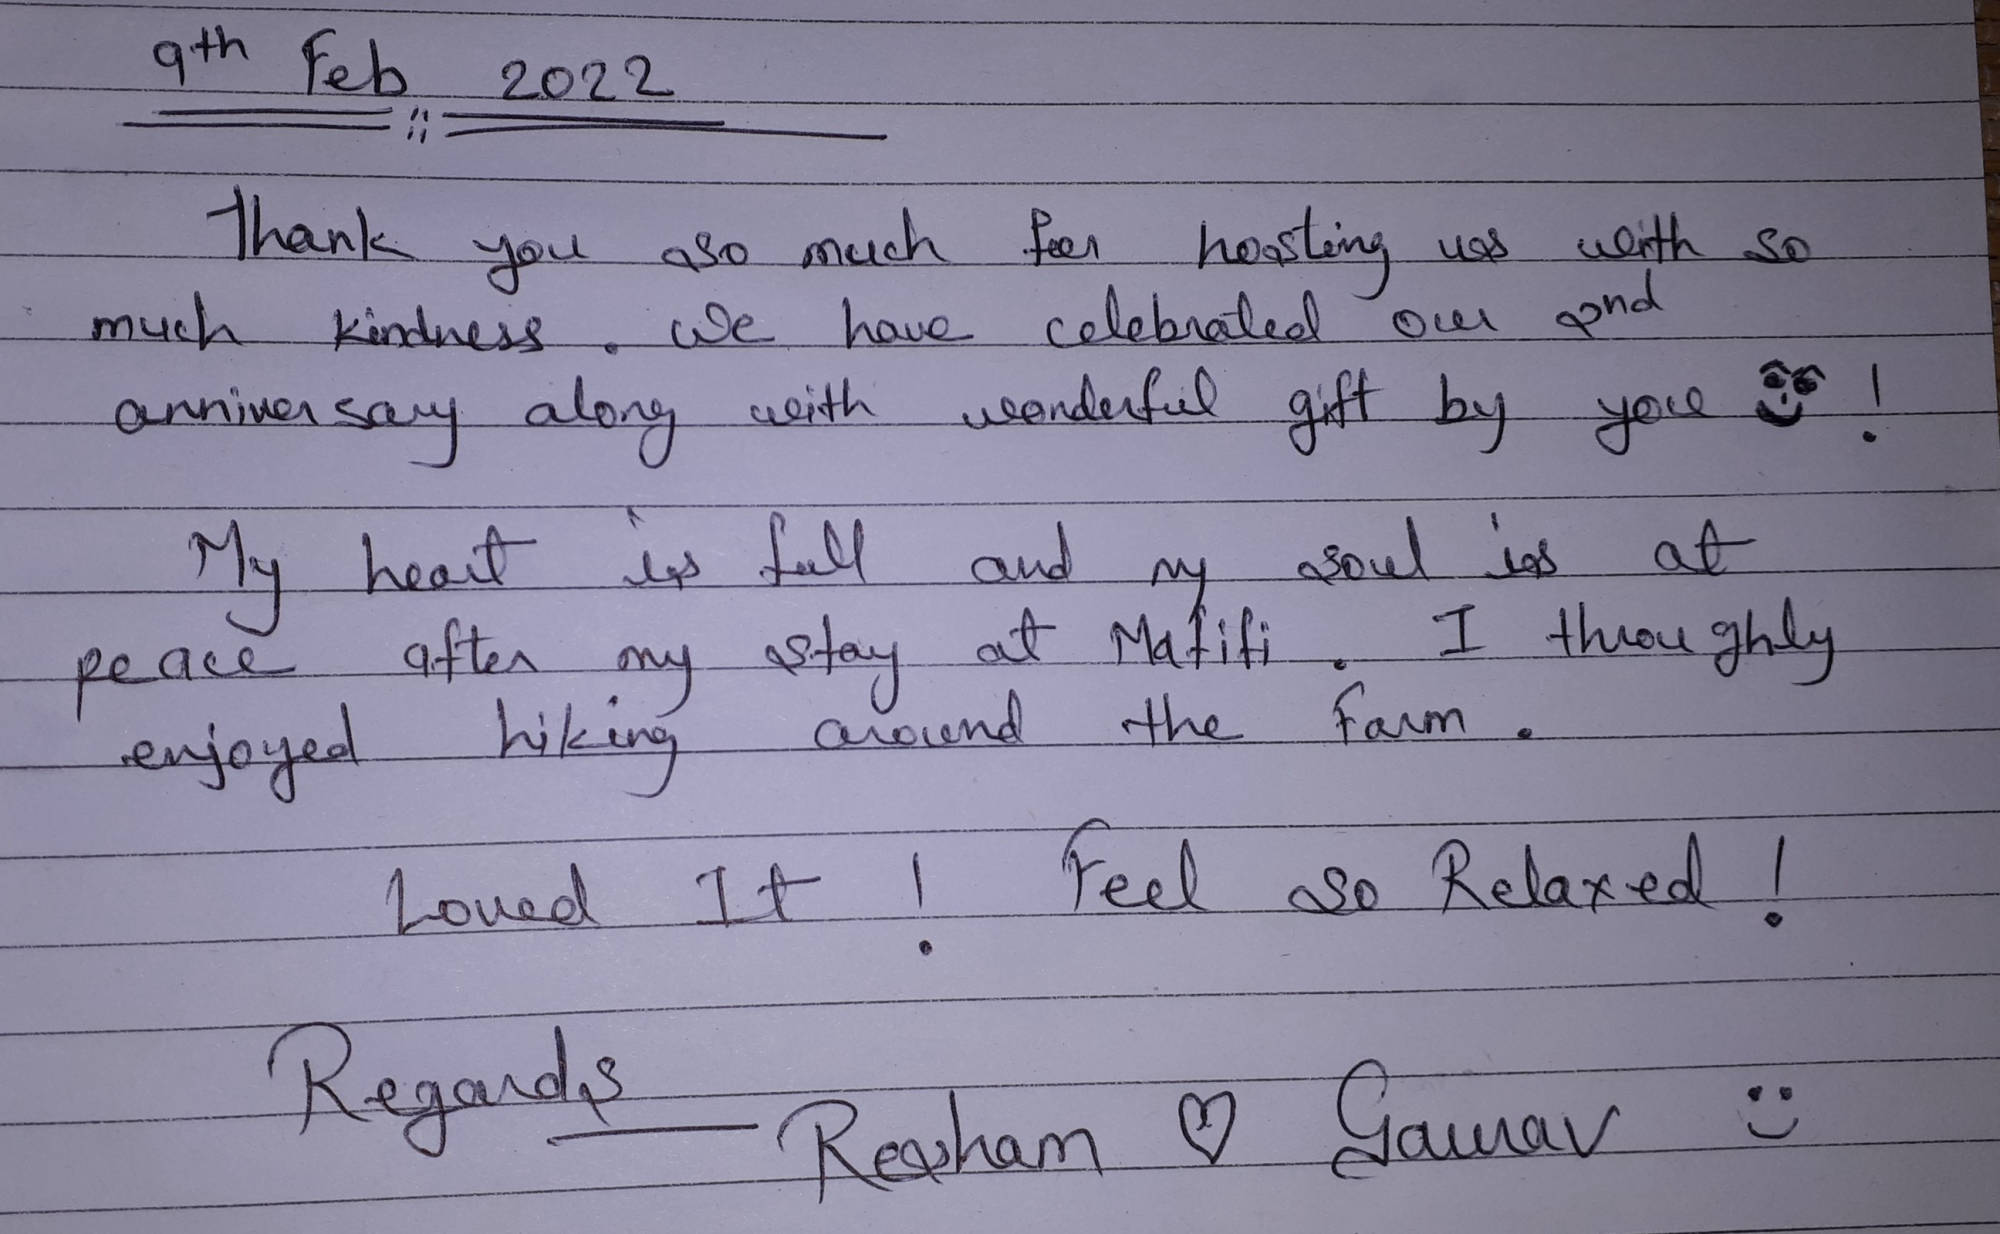 9th Feb 2022
Thank you so much for hosting us with so
much kindness. We have celebrated our 2nd
anniversary along with wonderful gift by you !
My heart is full and my soul is at
peace after my stay at Mafifi. I throughly
enjoyed hiking around the Farm.
Loved It ! Feel so Relaxed !
Regards
Resham ♡ Gaurav :)